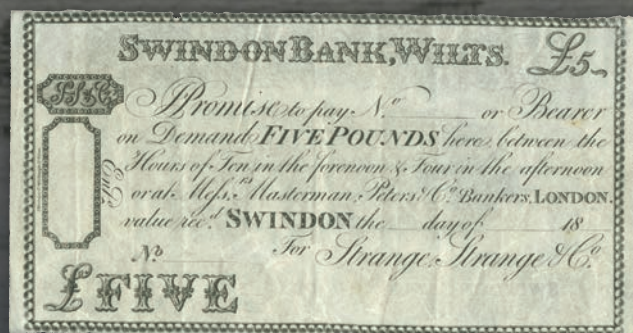 SWINDON BANK, WILTS. £5
SS&C
I Promise to pay N.o or Bearer
on Demand FIVE POUNDS here, between the
Hours of Ten in the forenoon & Four in the afternoon
or at Messrs. Masterman, Peters & Co. Bankers, LONDON.
Entd.
value recd. SWINDON the day of 18
No For Strange, Strange & Co.
£ FIVE